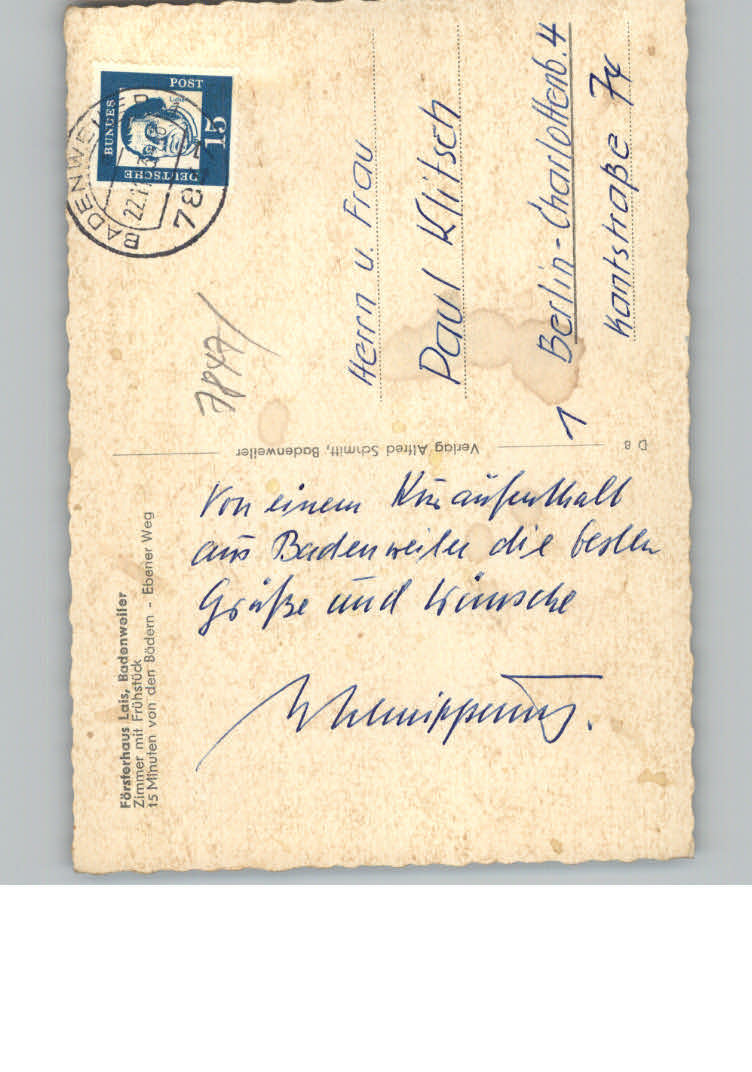 Försterhaus Lais, Badenweiler
Zimmer mit Frühstück
15 Minuten von den Bädern - Ebener Weg
Von einem Kuraufenthalt
aus Badenweiler die besten
Grüße und Wünsche
Verlag Alfred Schmitt, Badenweiler
D 8
7847/
DEUTSCHE
BUNDES
POST
15
BADENWEILER
22.
783
Herrn u. Frau
Paul Klitsch
1 Berlin-Charlottenb. 4
Kantstraße 74